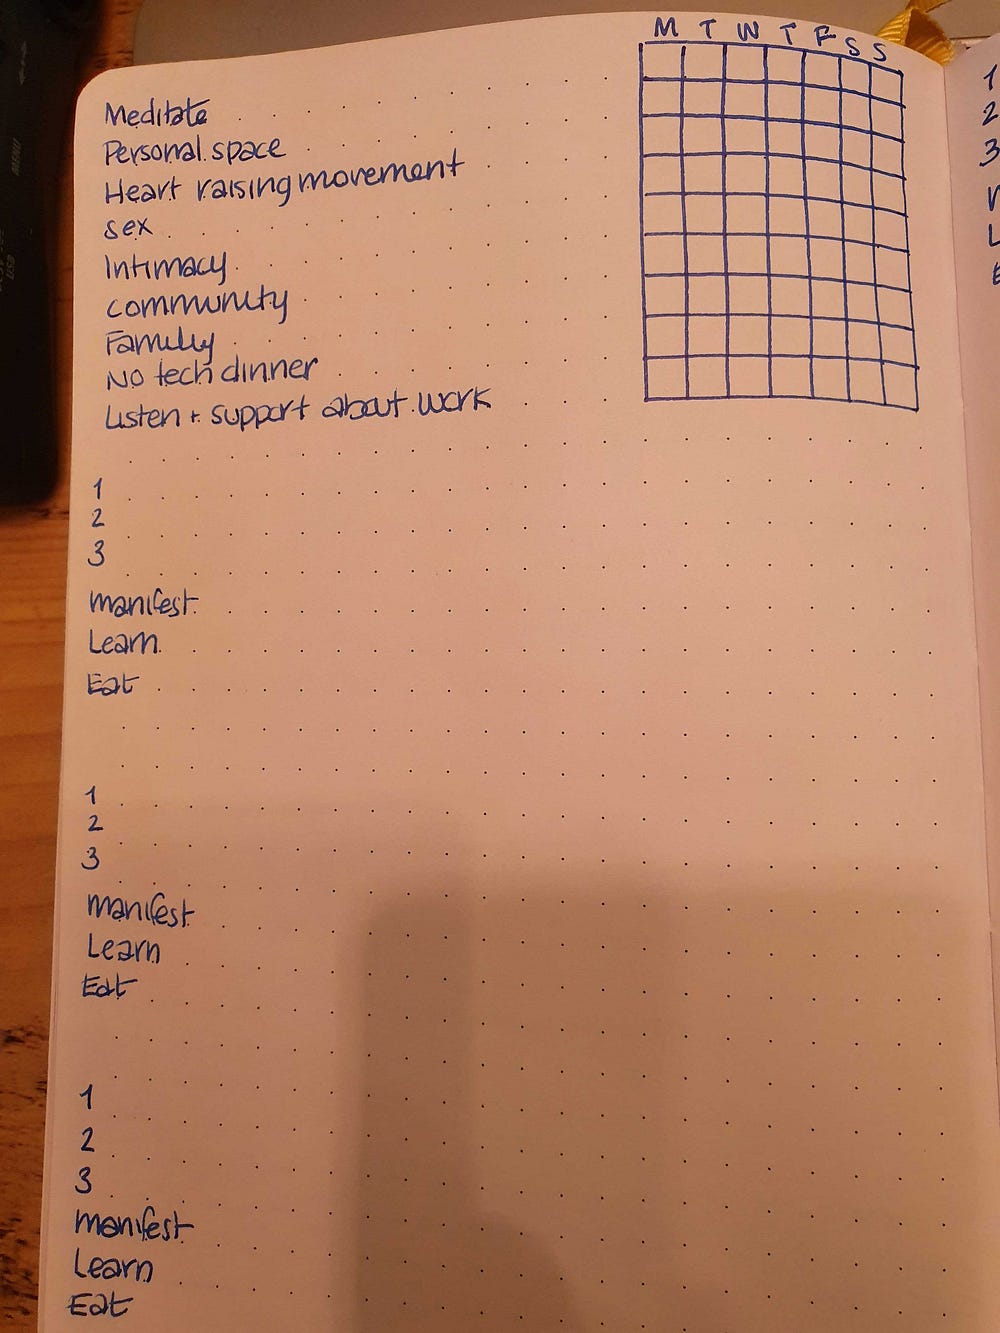 M T W T F S S
Meditate
Personal space
Heart raising movement
sex
Intimacy
community
Family
No tech dinner
Listen + support about work
1
2
3
manifest
Learn
Eat
1
2
3
manifest
Learn
Eat
1
2
3
manifest
Learn
Eat
1
2
3